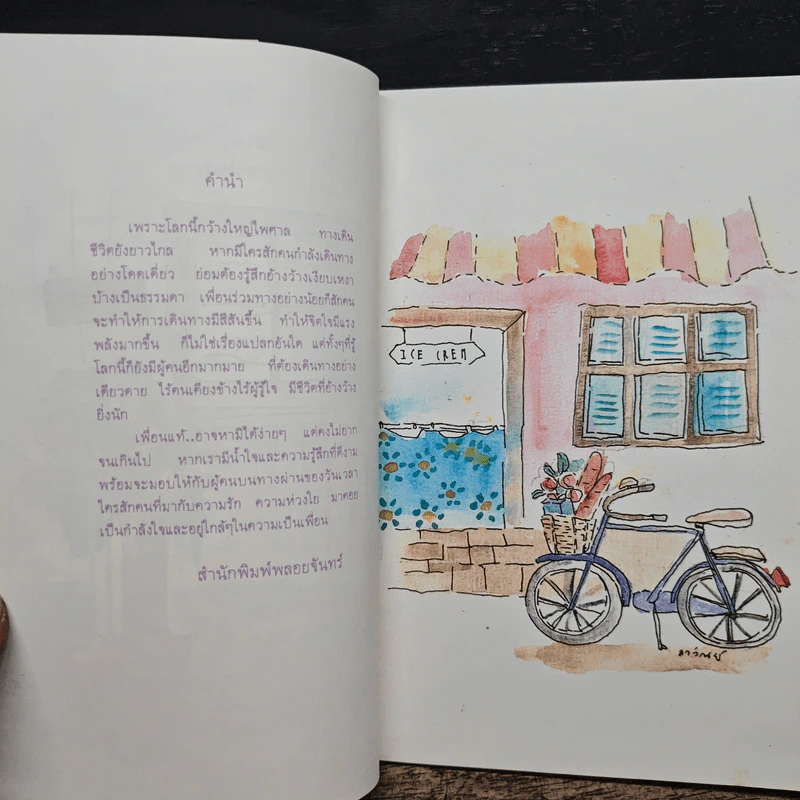 คำนำ
เพราะโลกนี้กว้างใหญ่ไพศาล ทางเดิน
ชีวิตยังยาวไกล หากมีใครสักคนกำลังเดินทาง
อย่างโดดเดี่ยว ย่อมต้องรู้สึกอ้างว้างเงียบเหงา
บ้างเป็นธรรมดา เพื่อนร่วมทางอย่างน้อยก็สักคน
จะทำให้การเดินทางมีสีสันขึ้น ทำให้จิตใจมีแรง
พลังมากขึ้น ก็ไม่ใช่เรื่องแปลกอันใด แต่ทั้งๆที่รู้
โลกนี้ก็ยังมีผู้คนอีกมากมาย ที่ต้องเดินทางอย่าง
เดียวดาย ไร้คนเคียงข้างไร้ผู้รู้ใจ มีชีวิตที่อ้างว้าง
ยิ่งนัก
เพื่อนแท้..อาจหามิได้ง่ายๆ แต่คงไม่ยาก
จนเกินไป หากเรามีน้ำใจและความรู้สึกที่ดีงาม
พร้อมจะมอบให้กับผู้คนบนทางผ่านของวันเวลา
ใครสักคนที่มากับความรัก ความห่วงใย มาคอย
เป็นกำลังใจและอยู่ใกล้ๆในความเป็นเพื่อน
สำนักพิมพ์พลอยจันทร์
ICE CREM